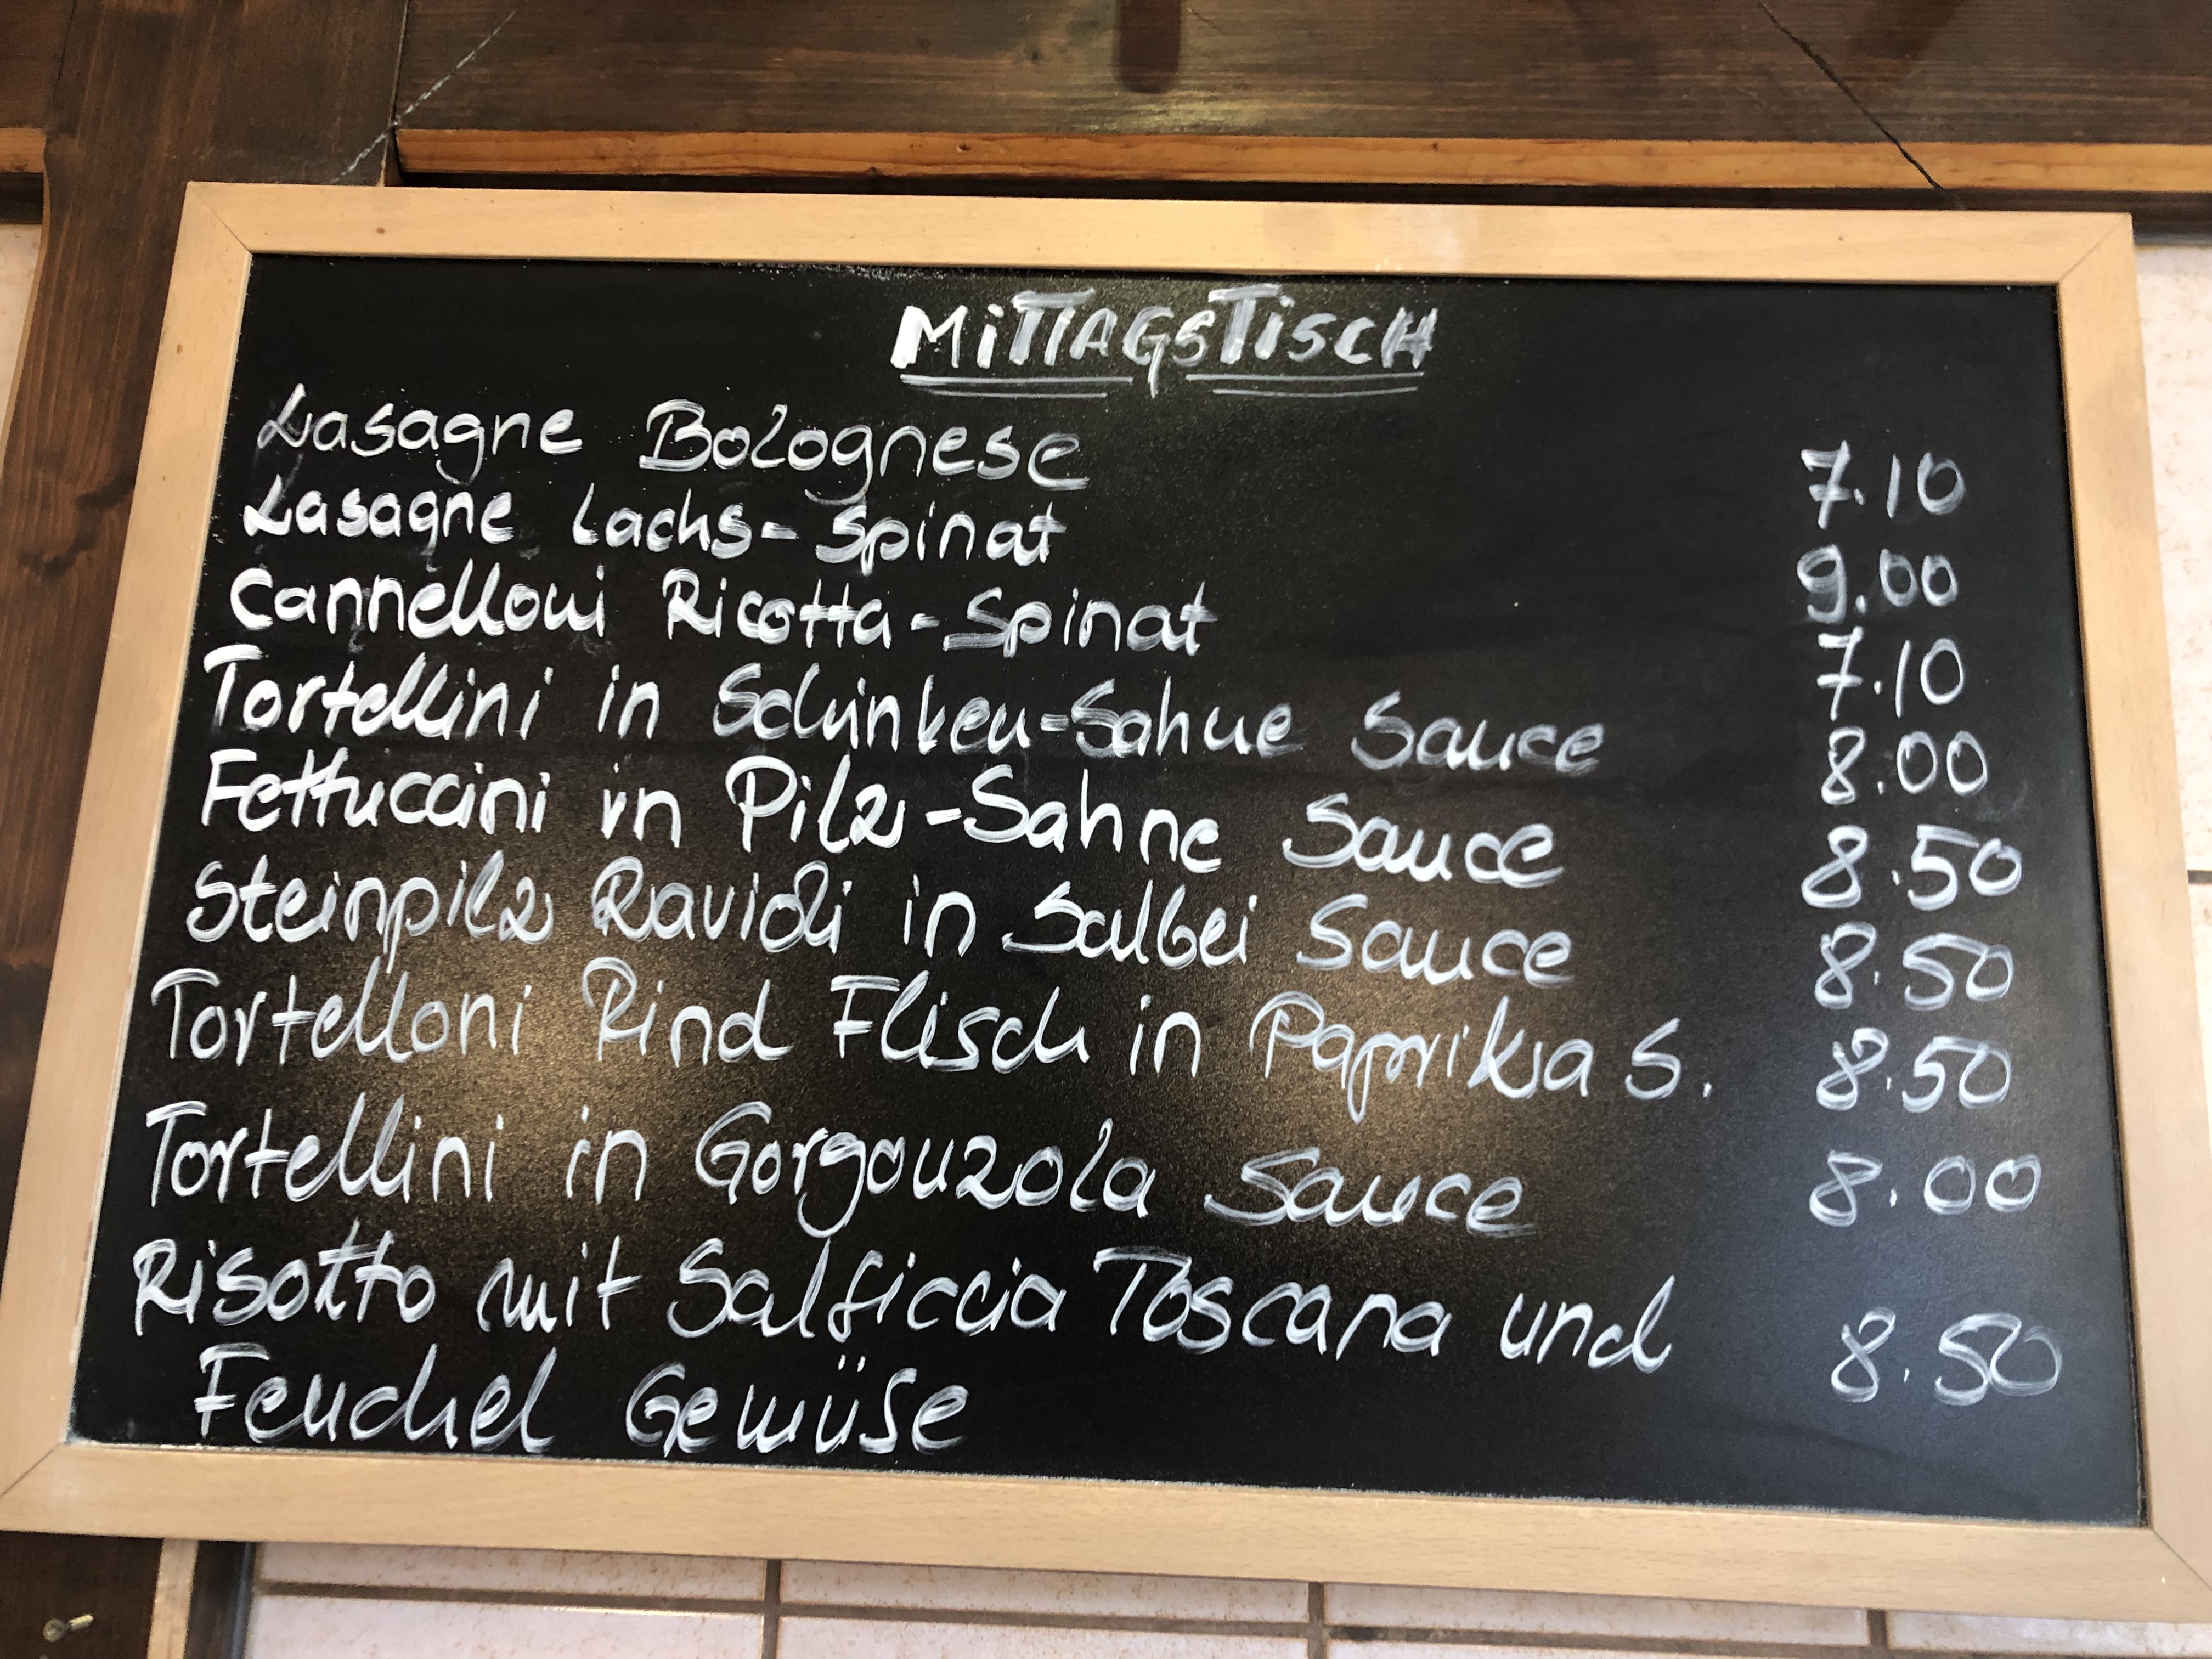 MiTTAGSTiSCH
Lasagne Bolognese 7.10
Lasagne Lachs-Spinat 9.00
Cannelloni Ricotta-Spinat 7.10
Tortellini in Schinken-Sahne Sauce 8.00
Fettuccini in Pilz-Sahne Sauce 8.50
Steinpilz Ravioli in Salbei Sauce 8.50
Tortelloni Rind Flisch in Paprika S. 8.50
Tortellini in Gorgonzola Sauce 8.00
Risotto mit Salsiccia Toscana und 8.50
Fenchel Gemüse